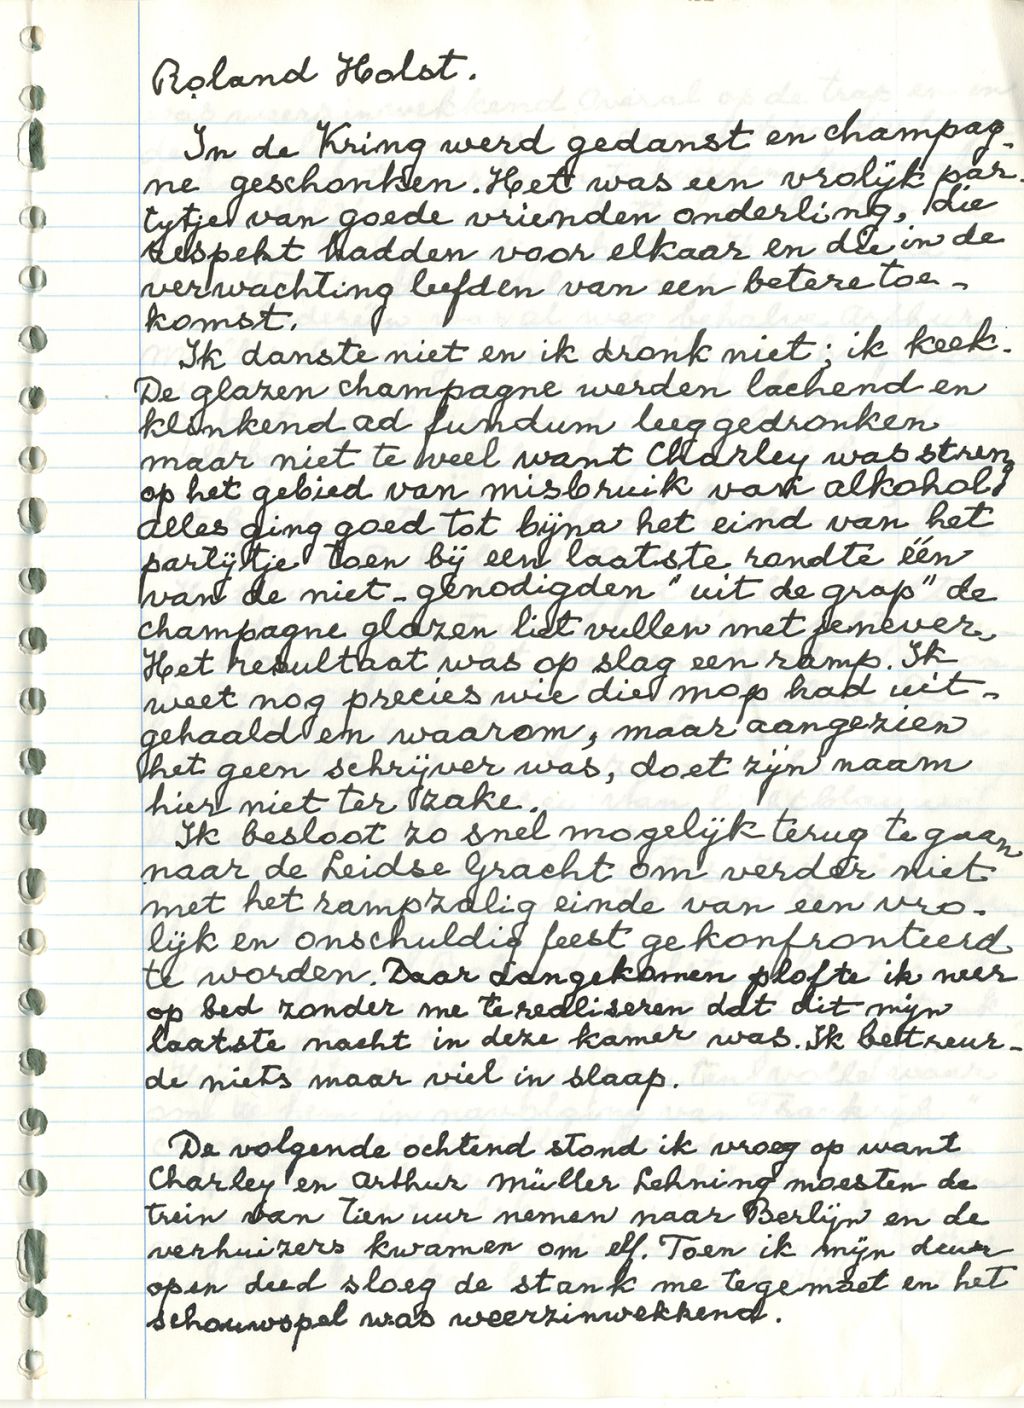 Roland Holst.
In de Kring werd gedanst en champag-
ne geschonken. Het was een vrolijk par-
tytje van goede vrienden onderling, die
respekt hadden voor elkaar en die in de
verwachting leefden van een betere toe-
komst.
Ik danste niet en ik dronk niet; ik keek.
De glazen champagne werden lachend en
klinkend ad fundum leeggedronken
maar niet te veel want Charley was streng
op het gebied van misbruik van alkohol.
Alles ging goed tot bijna het eind van het
partijtje toen bij een laatste rondte één
van de niet-genodigden "uit de grap" de
champagne glazen liet vullen met jenever.
Het resultaat was op slag een ramp. Ik
weet nog precies wie die mop had uit-
gehaald en waarom, maar aangezien
het geen schrijver was, doet zijn naam
hier niet ter zake.
Ik besloot zo snel mogelijk terug te gaan
naar de Leidse Gracht om verder niet
met het rampzalig einde van een vro-
lijk en onschuldig feest gekonfronteerd
te worden. Daar aangekomen plofte ik neer
op bed zonder me te realiseren dat dit mijn
laatste nacht in deze kamer was. Ik betreur-
de niets maar viel in slaap.
De volgende ochtend stond ik vroeg op want
Charley en Arthur Müller Lehning moesten de
trein van tien uur nemen naar Berlijn en de
verhuizers kwamen om elf. Toen ik mijn deur
open deed sloeg de stank me tegemoet en het
schouwspel was weerzinwekkend.